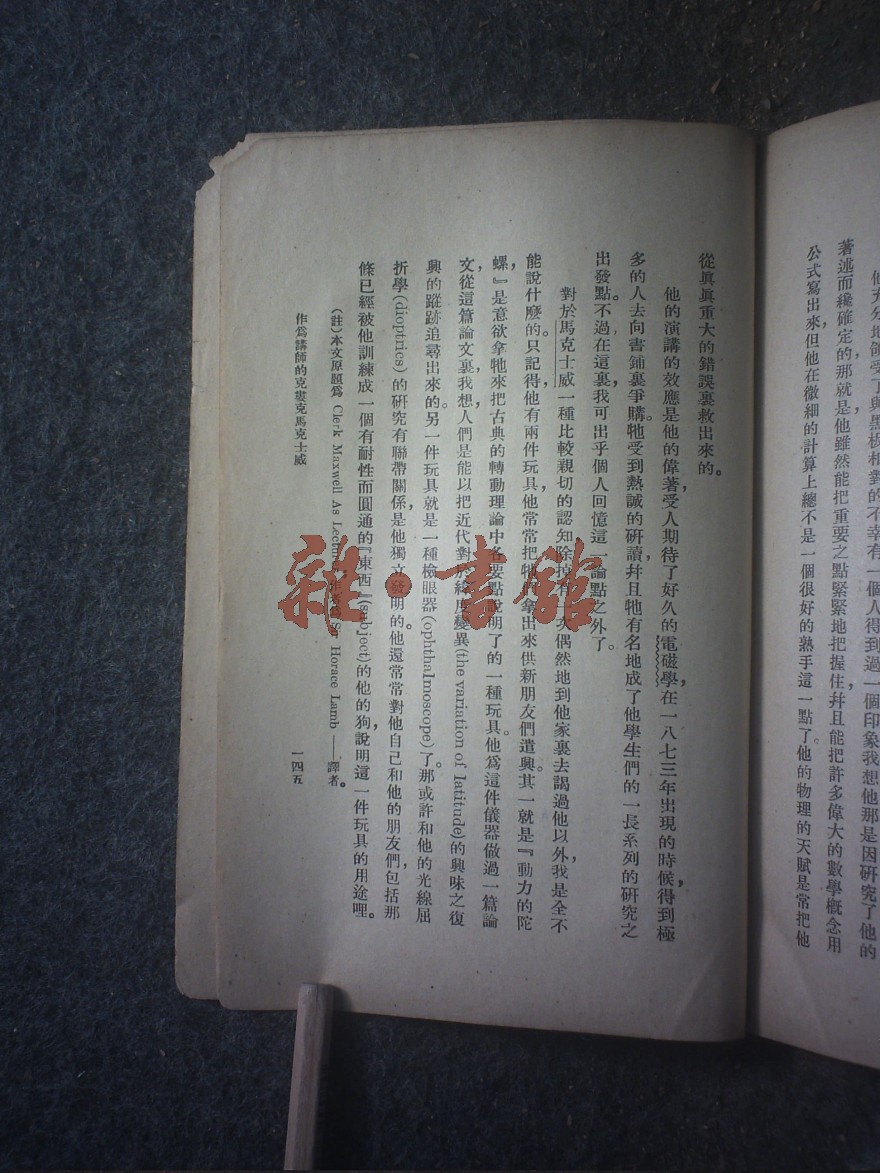 他充分地領受了與黑板相對的不幸有一個人得到過一個印象我想他那是因研究了他的
著述而纔確定的,那就是他雖然能把重要之點緊緊地把握住,幷且能把許多偉大的數學槪念用
公式寫出來,但他在微細的計算上總不是一個很好的熟手這一點了。他的物理的天賦是常把他
從眞眞重大的錯誤裏救出來的。
他的演講的效應是他的偉著受人期待了好久的電磁學,在一八七三年出現的時候,得到極
多的人去向書鋪裏爭購。牠受到熱誠的硏讀,幷且牠有名地成了他學生們的一長系列的硏究之
出發點。不過在這裏,我可出乎個人回憶這一論點之外了。
對於馬克士威一種比較親切的認知,除掉有一次偶然地到他家裏去謁過他以外,我是全不
能說什麼的。只記得,他有兩件玩具,他常常把牠們拿出來供新朋友們遣興。其一就是『動力的陀
螺,』是意欲拿牠來把古典的轉動理論中各要點說明了的一種玩具。他爲這件儀器做過一篇論
文,從這篇論文裏,我想,人們是能以把近代對於緯度變異(the variation of latitude)的興味之復
興的蹤跡追尋出來的。另一件玩具就是一種檢眼器(ophthalmoscope)了。那或許和他的光線屈
折學(dioptrics)的硏究有聯帶關係,是他獨立發明的。他還常常對他自己和他的朋友們,包括那
條已經被他訓練成一個有耐性而圓通的『東西』(subject)的他的狗,說明這一件玩具的用途哩。
(註)本文原題爲 Clerk Maxwell As Lecturer, Sir Horace Lamb ——譯者。
作爲講師的克婁克馬克士威
一四五
雜·書館